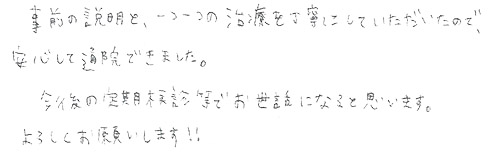 事前の説明と、一つ一つの治療を丁寧にしていただいたので、
安心して通院できました。
今後の定期検診等でお世話になると思います。
よろしくお願いします!!